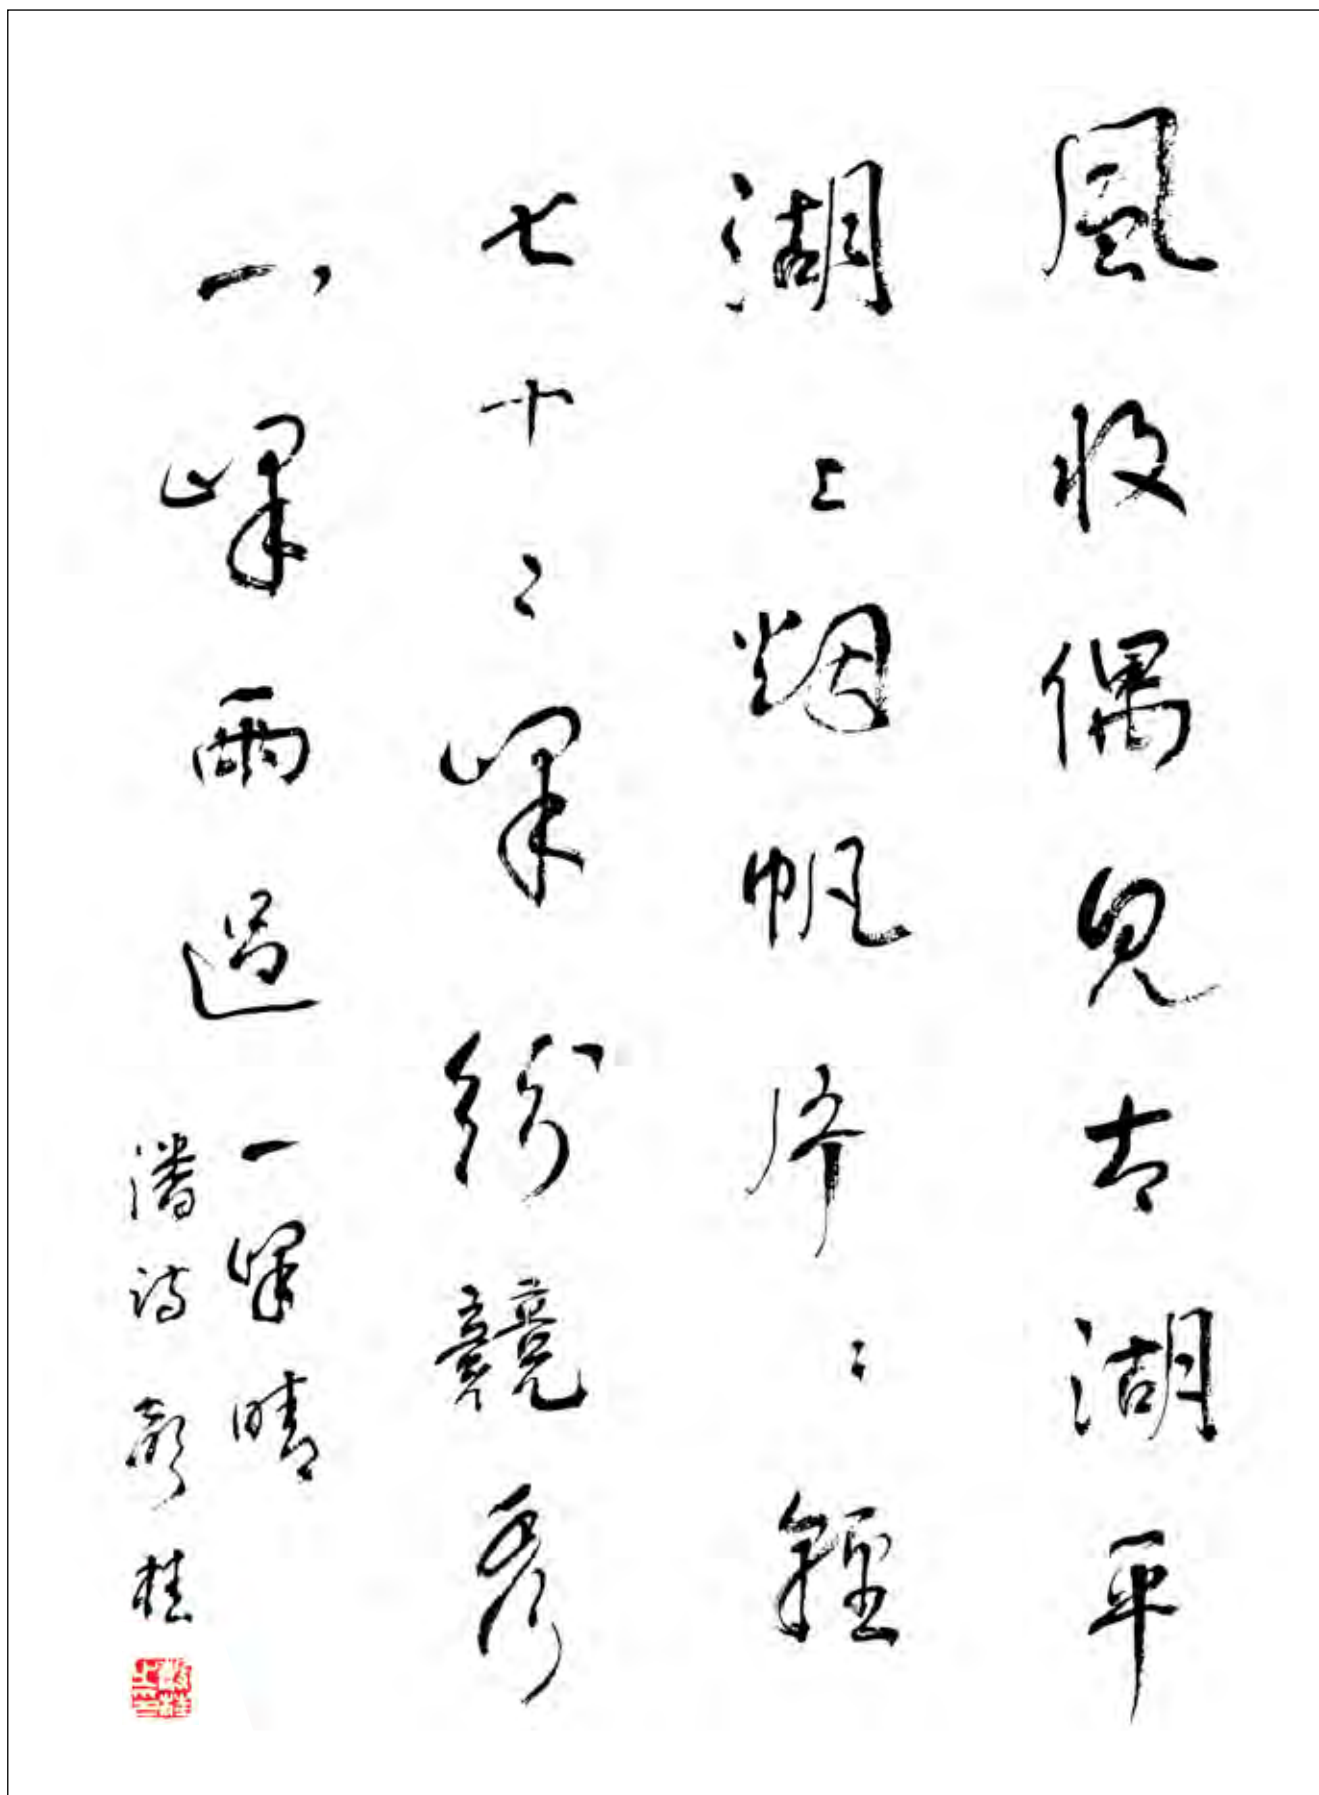 風收偶見古湖平
湖上烟帆片〻輕
七十二峰紛競秀
一峰雨過一峰晴
潘詩 彭桂
彭桂之印